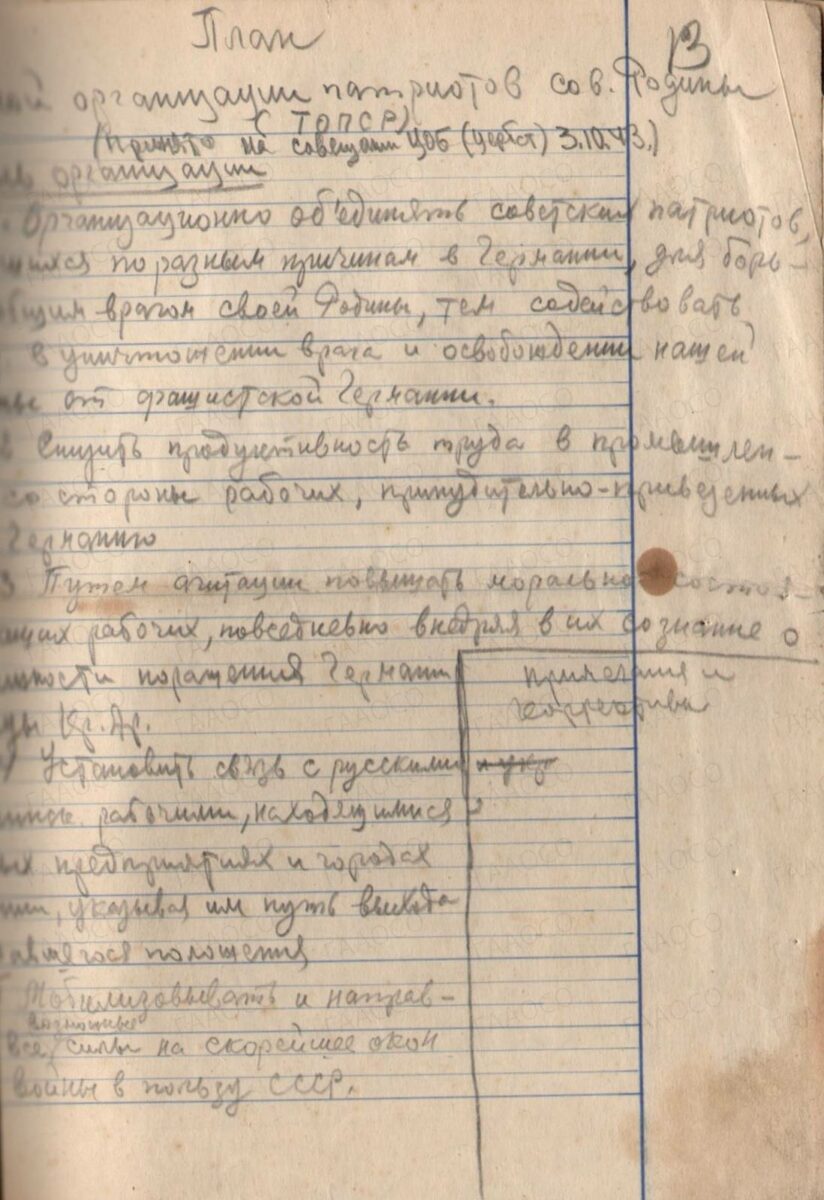 План
13
ной организации патриотов сов. Родины
(ТОПСР)
(Принято на совещании ЦОБ (Цербст) 3.10.43.)
ль организации
Организационно об'единять советских патриотов,
шихся по разным причинам в Германии, для борь-
общим врагом своей Родины, тем содействовать
в уничтожении врага и освобождении нашей
ны от фашистской Германии.
Снизить продуктивность труда в промышлен-
со стороны рабочих, принудительно-приведенных
Германию
3 Путем агитации повышать морально состоя-
ащих рабочих, повседневно внедряя в их сознание о
имости поражения Германи
ды Кр. Ар.
примечания и
коррективы
Установить связь с русскими
рабочими, находящимися
ых предприятиях и городах
нии, указывая им путь выхода
авшегося положения
Мобилизовывать и направ-
возможные
все силы на скорейшее окон
войны в пользу СССР.